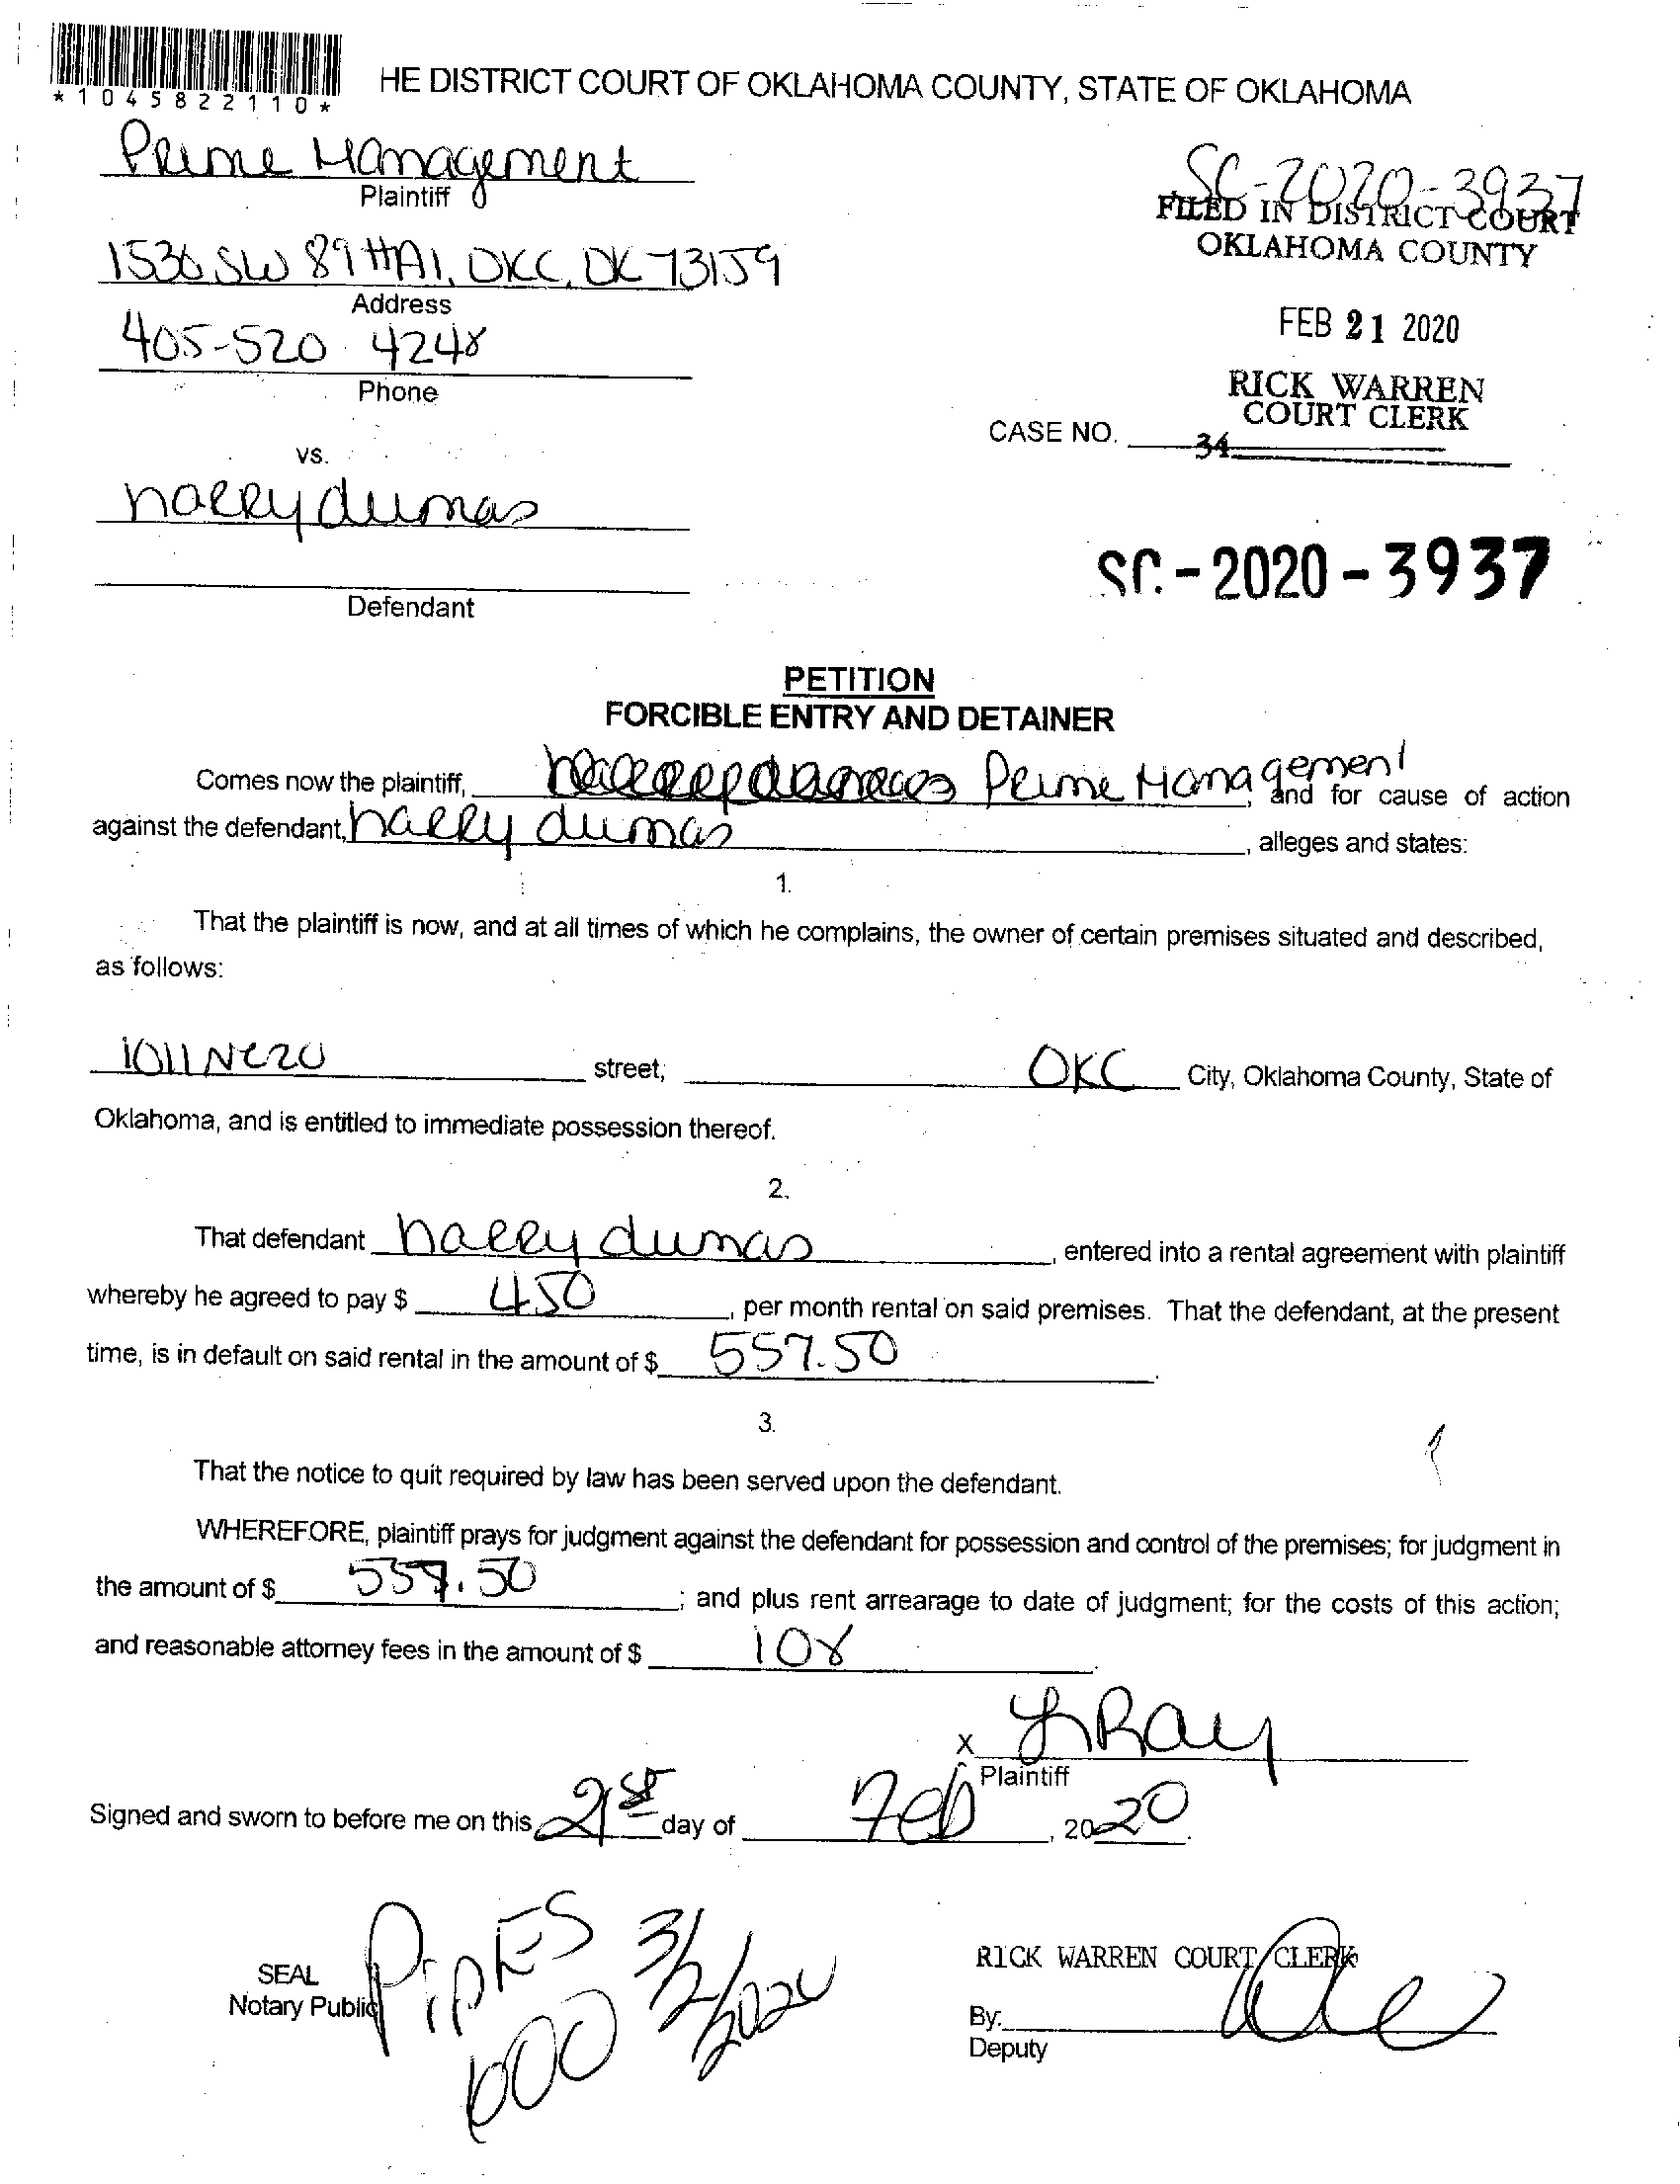 *1045822110*
HE DISTRICT COURT OF OKLAHOMA COUNTY, STATE OF OKLAHOMA
Prime Management
Plaintiff
SC-2020-3937
FILED IN DISTRICT COURT
OKLAHOMA COUNTY
1536 SW 89 #A1, OKC, OK 73159
Address
FEB 21 2020
405-520-4248
Phone
RICK WARREN
COURT CLERK
CASE NO.
34
vs.
harry dumas
SC-2020-3937
Defendant
PETITION
FORCIBLE ENTRY AND DETAINER
Comes now the plaintiff, Prime Management, and for cause of action
against the defendant, harry dumas, alleges and states:
1.
That the plaintiff is now, and at all times of which he complains, the owner of certain premises situated and described,
as follows:
1011 NE 20 street, OKC City, Oklahoma County, State of
Oklahoma, and is entitled to immediate possession thereof.
2.
That defendant harry dumas, entered into a rental agreement with plaintiff
whereby he agreed to pay $ 450, per month rental on said premises. That the defendant, at the present
time, is in default on said rental in the amount of $ 557.50.
3.
That the notice to quit required by law has been served upon the defendant.
WHEREFORE, plaintiff prays for judgment against the defendant for possession and control of the premises; for judgment in
the amount of $ 557.50; and plus rent arrearage to date of judgment; for the costs of this action;
and reasonable attorney fees in the amount of $ 108.
x LRay
Plaintiff
Signed and sworn to before me on this 21st day of Feb, 2020.
Pipkes
600
3/2/2020
SEAL
Notary Public
RICK WARREN COURT CLERK
By:
Deputy